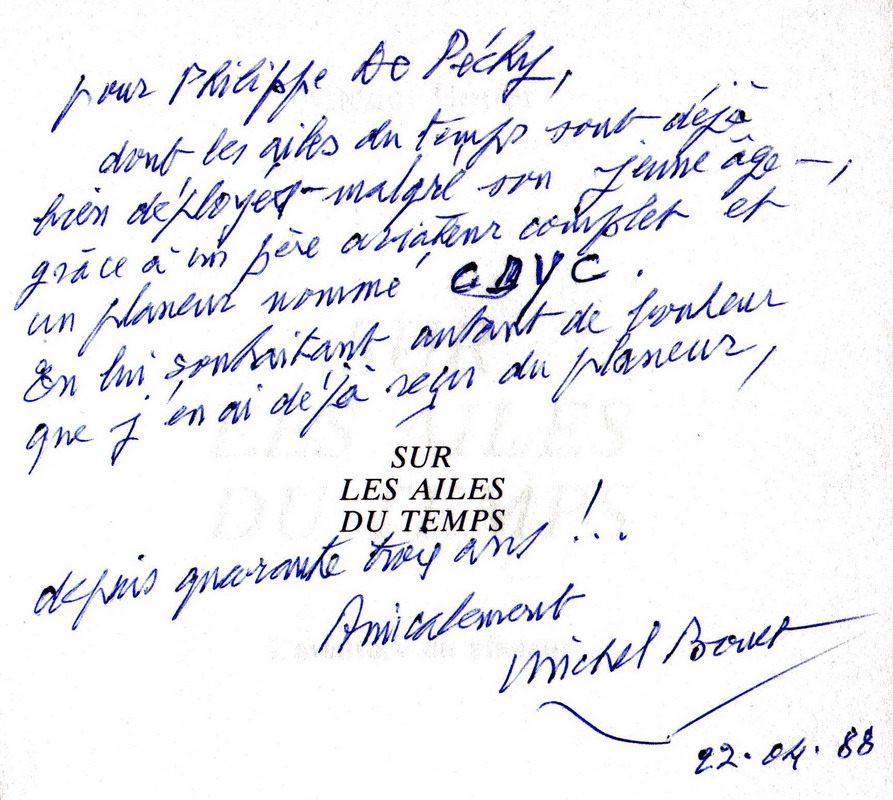 pour Philippe De Péchy,
dont les ailes du temps sont déjà
bien déployées - malgré son jeune âge -,
grâce à un père aviateur complet et
un planeur nommé .
En lui souhaitant autant de bonheur
que j'en ai déjà reçu du planeur,
SUR
LES AILES
DU TEMPS
depuis quarante trois ans !..
Amicalement
Michel
22.04.88